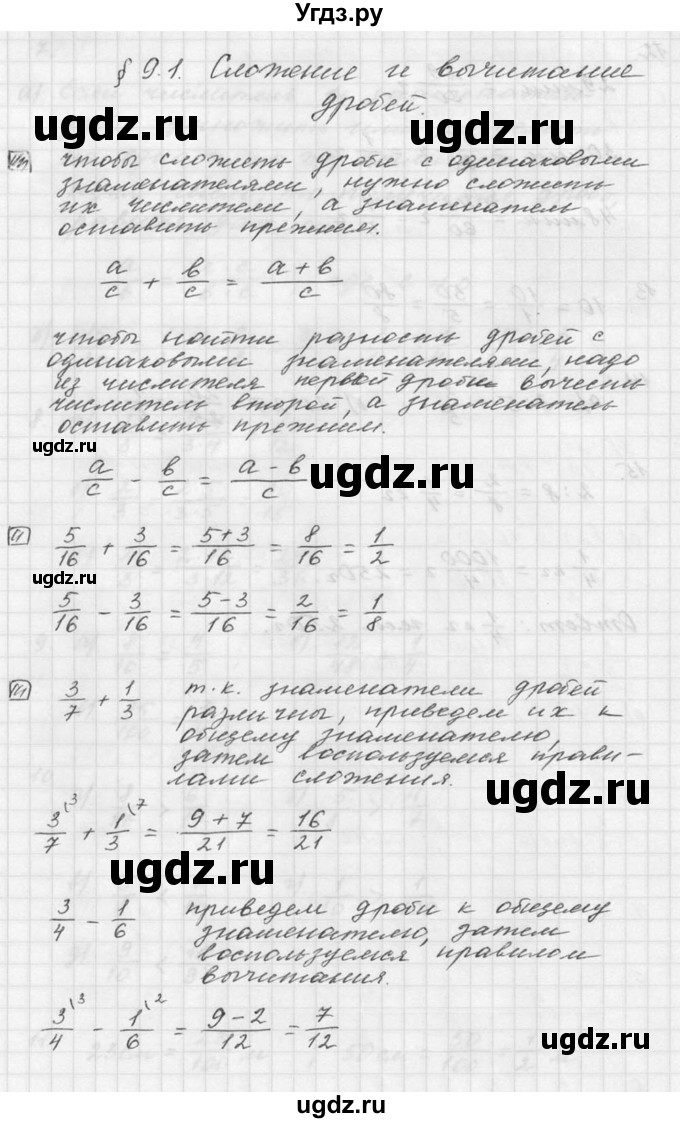 Угдз.ру
§ 9.1. Сложение и вычитание
дробей.
ugdz.ru
чтобы сложить дроби с одинаковыми
знаменателями, нужно сложить
их числители, а знаменатель
оставить прежним.
a/c + b/c = (a + b)/c
ugdz.ru
чтобы найти разность дробей с
одинаковыми знаменателями, надо
из числителя первой дроби вычесть
числитель второй, а знаменатель
оставить прежним.
ugdz.ru
a/c - b/c = (a - b)/c
ugdz.ru
II 5/16 + 3/16 = (5+3)/16 = 8/16 = 1/2
ugdz.ru
5/16 - 3/16 = (5-3)/16 = 2/16 = 1/8
III 3/7 + 1/3 т.к. знаменатели дробей
различны, приведем их к
общему знаменателю,
затем воспользуемся прави-
лами сложения.
ugdz.ru
3/7 (3 + 1/3 (7 = (9+7)/21 = 16/21
ugdz.ru
3/4 - 1/6 приведем дроби к общему
знаменателю, затем
воспользуемся правилом
вычитания.
3/4 (3 - 1/6 (2 = (9-2)/12 = 7/12
ugdz.ru
ugdz.ru